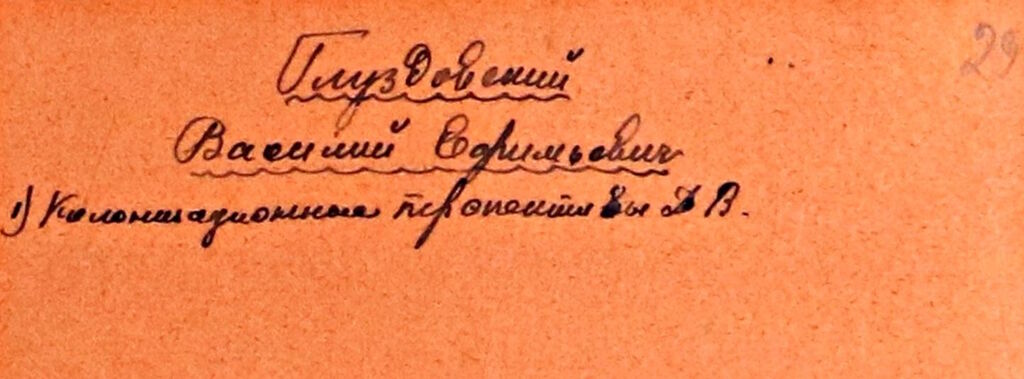 29
Глуздовский
Василий Ефимьевич
1) Колонизационные перспективы Д В.